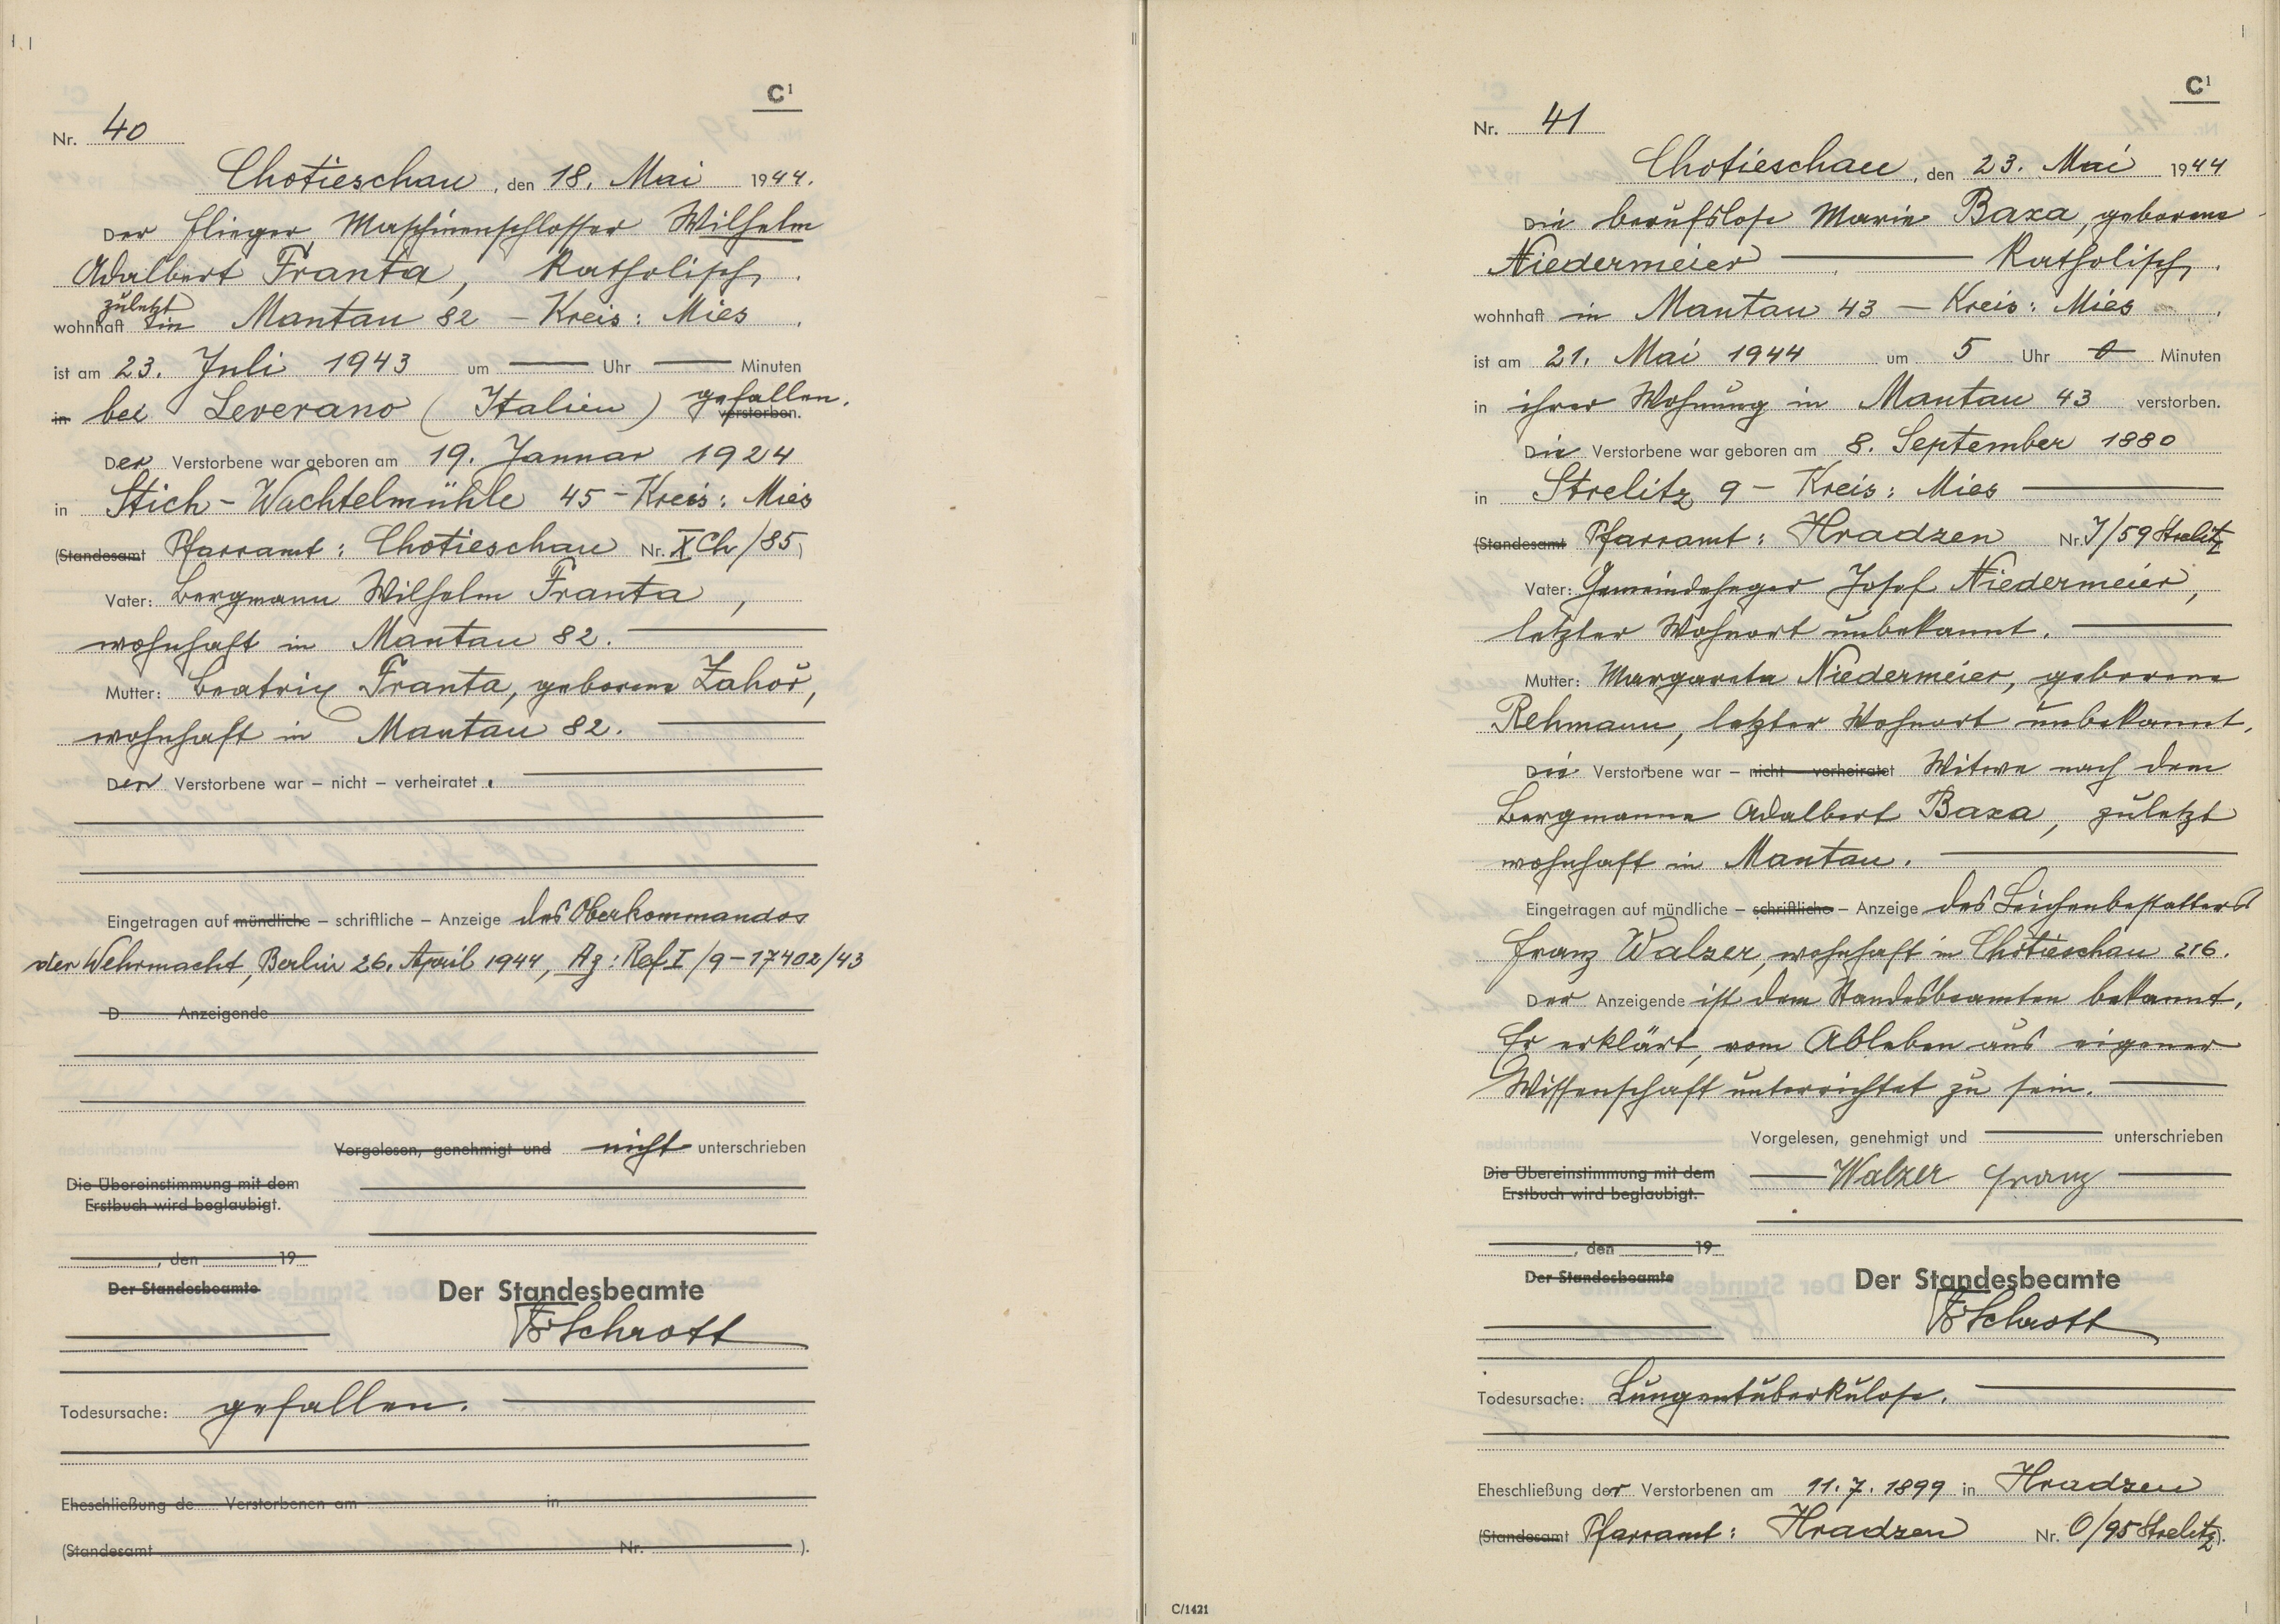 C¹
Nr. 40
Chotieschau, den 18. Mai 1944.
Der Flieger, Maschinenschlosser Wilhelm
Adalbert Franta, katholisch.
zuletzt
wohnhaft in Mantau 82 - Kreis: Mies.
ist am 23. Juli 1943 um — Uhr — Minuten
in bei Leverano (Italien) gefallen.
verstorben.
Der Verstorbene war geboren am 19. Januar 1924
in Stich-Wachtelmühle 45 - Kreis: Mies
(Standesamt Pfarramt: Chotieschau Nr. X Ch/85)
Vater: Bergmann Wilhelm Franta,
wohnhaft in Mantau 82.
Mutter: Beatrix Franta, geborene Zahoř,
wohnhaft in Mantau 82.
Der Verstorbene war – nicht – verheiratet.
Eingetragen auf mündliche – schriftliche – Anzeige des Oberkommandos
der Wehrmacht, Berlin 26. April 1944, Az: Ref I/9-17402/43
D Anzeigende
Vorgelesen, genehmigt und nicht unterschrieben
Die Übereinstimmung mit dem
Erstbuch wird beglaubigt.
, den 19
Der Standesbeamte
Der Standesbeamte
Schrott
Todesursache: gefallen.
Eheschließung de Verstorbenen am in
(Standesamt Nr. ).
C¹
Nr. 41
Chotieschau, den 23. Mai 1944
Die berufslose Marie Baxa, geborene
Niedermeier — katholisch.
wohnhaft in Mantau 43 - Kreis: Mies.
ist am 21. Mai 1944 um 5 Uhr 0 Minuten
in ihrer Wohnung in Mantau 43 verstorben.
Die Verstorbene war geboren am 8. September 1880
in Strelitz 9 - Kreis: Mies
(Standesamt Pfarramt: Hradzen Nr. 7/59 Strelitz
Vater: Gemeindeheger Josef Niedermeier,
letzter Wohnort unbekannt.
Mutter: Margareta Niedermeier, geborene
Rehmann, letzter Wohnort unbekannt.
Die Verstorbene war – nicht – verheiratet Witwe nach dem
Bergmanne Adalbert Baxa, zuletzt
wohnhaft in Mantau.
Eingetragen auf mündliche – schriftliche – Anzeige des Leichenbestatters
Franz Walzer, wohnhaft in Chotieschau 216.
Der Anzeigende ist dem Standesbeamten bekannt.
Er erklärt, vom Ableben aus eigener
Wissenschaft unterrichtet zu sein.
Vorgelesen, genehmigt und — unterschrieben
Die Übereinstimmung mit dem
Erstbuch wird beglaubigt.
Walzer Franz
, den 19
Der Standesbeamte
Der Standesbeamte
Schrott
Todesursache: Lungentuberkulose.
Eheschließung der Verstorbenen am 11.7.1899 in Hradzen
(Standesamt Pfarramt: Hradzen Nr. 0/95 Strelitz).
C/1421